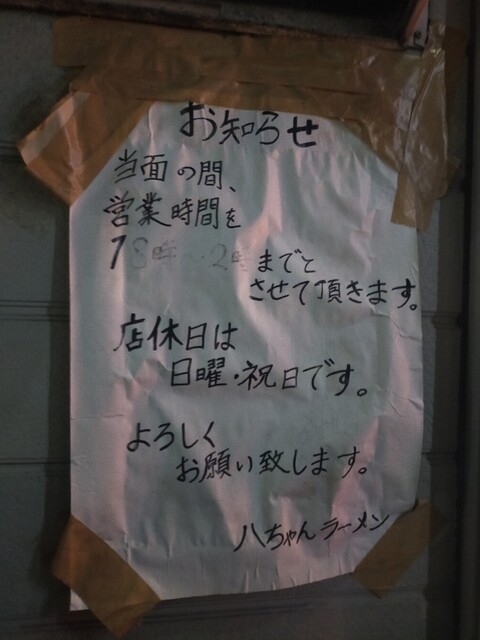 お知らせ
当面の間、
営業時間を
18時〜2時までと
させて頂きます。
店休日は
日曜・祝日です。
よろしく
お願い致します。
八ちゃんラーメン